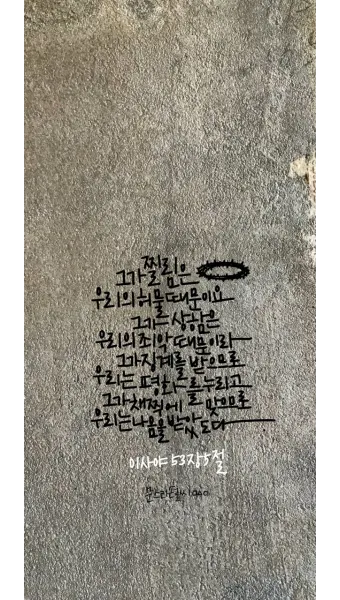 그가 찔림은
우리의 허물 때문이요
그가 상함은
우리의 죄악 때문이라
그가 징계를 받으므로
우리는 평화를 누리고
그가 채찍에 맞으므로
우리는 나음을 받았도다
이사야 53장 5절